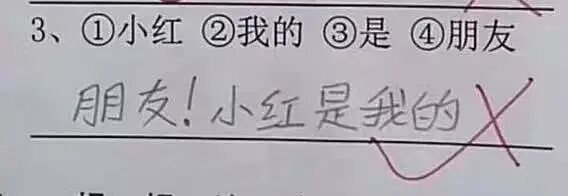 3、①小红 ②我的 ③是 ④朋友
朋友!小红是我的